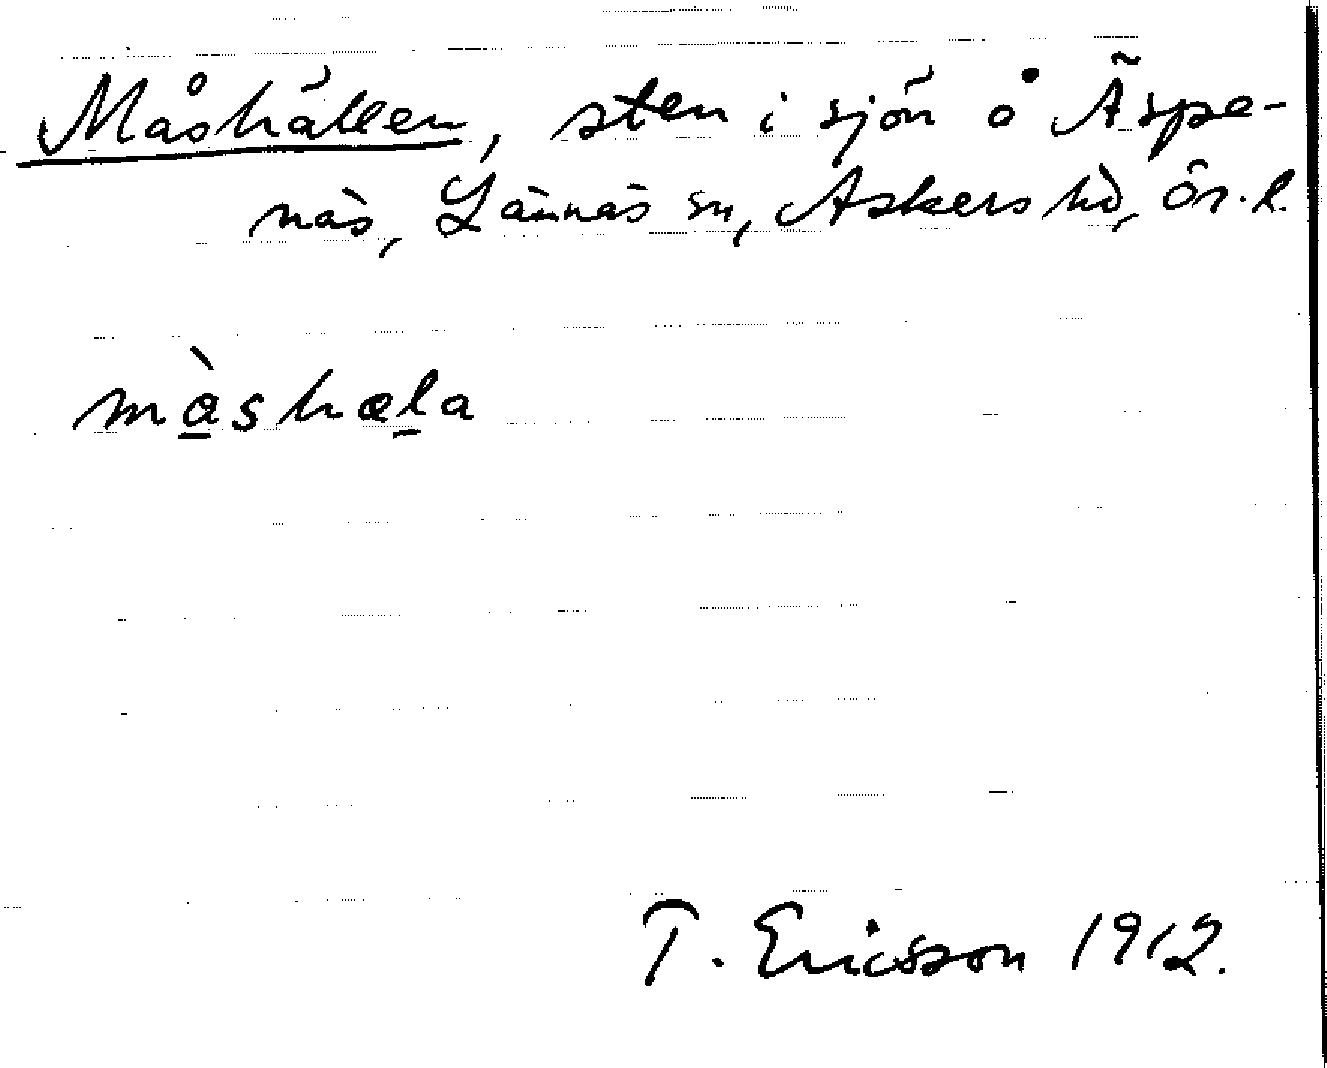 Måshällen, sten i sjön å Äspe-
näs, Lännäs sn, Askers hd, Ör. l.
måshæla
T. Ericsson 1912.